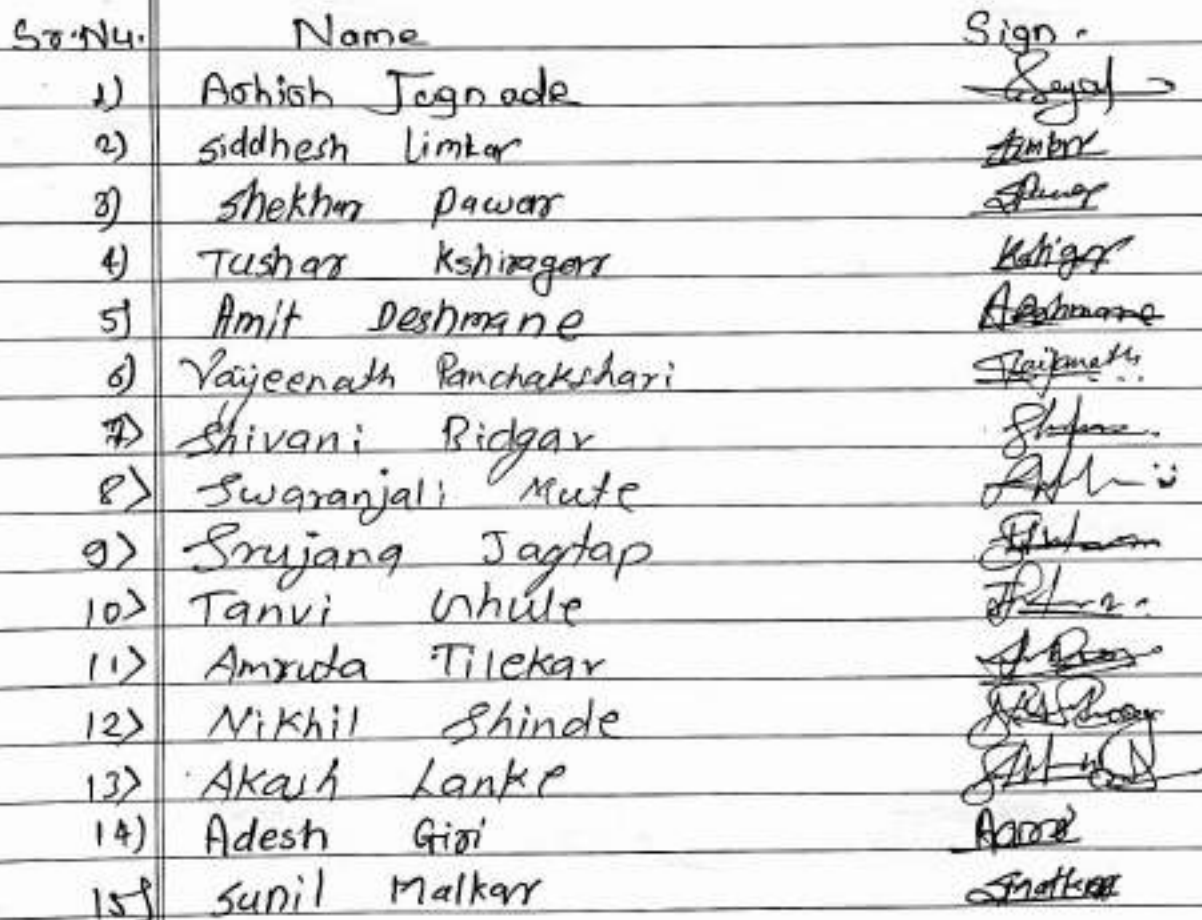 Sr.No. Name Sign.
1) Ashish Jagnade
2) Siddhesh Limkar Limkar
3) Shekhar Pawar Pawar
4) Tushar Kshiragar
5) Amit Deshmane ADeshmane
6) Vaijeenath Panchakshari Vaijeenath
7) Shivani Bidgar
8) Swaranjali Mute
9) Srujana Jagtap
10) Tanvi Ghule
11) Amruta Tilekar
12) Nikhil Shinde
13) Akash Lanke
14) Adesh Giri
15) Sunil Malkar